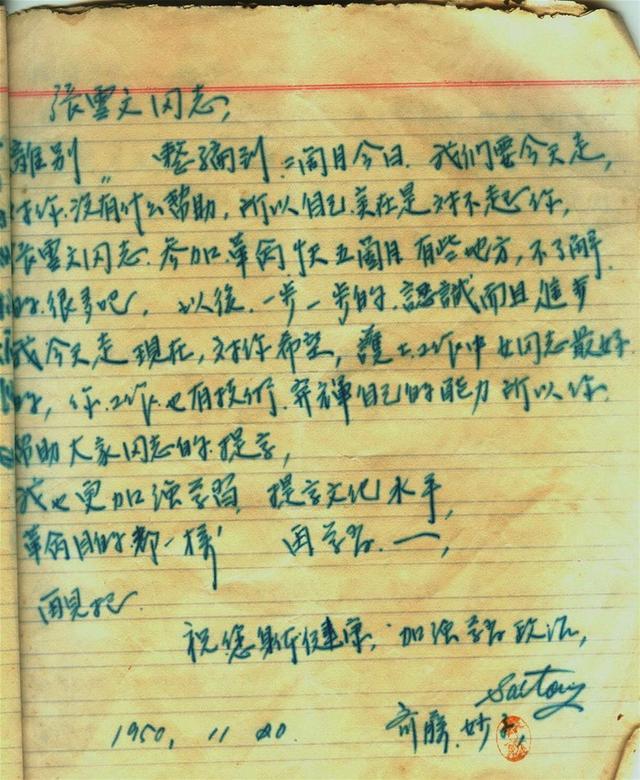 張雲文同志,
離別 整編到 二個月今日. 我们要今天走,
对你.没有什么帮助, 所以自己.实在是 対不起 你,
張雲文同志. 参加 革命 快 五箇月 有些地方, 不了解.
的.很多吧, 以後. 一步 一步的. 認識 而且 進步
我 今天 走 现在, 対你 希望, 護士.工作中 女同志 最好.
的, 你.工作.也有技術. 発揮 自己的 能力 所以 你.
帮助 大家 同志的.提高,
我也 更加 强 学習, 提高文化 水平,
革命 目的 都 一様 再
再見吧.
祝 您 身体健康, 加强 学習 政治,
Saitou
1950, 11 20. 斉藤. 妙子,